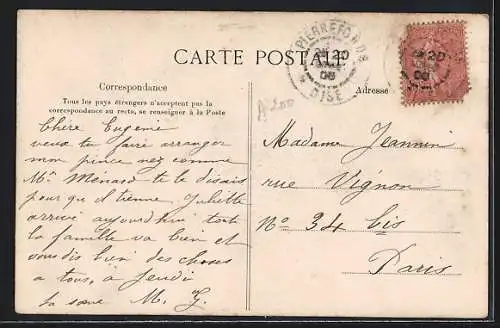 CARTE POSTALE
PIERREFONDS
OISE
20
06
Correspondance
Tous les pays étrangers n'acceptent pas la
correspondance au recto, se renseigner à la Poste
Adresse
Chère Eugénie
veux tu faire arranger
mon pince nez comme
Mr Ménard te le disais
pour qu'il tienne. Juliette
arrive aujourd'hui toute
la famille va bien et
vous dis bien des choses
a tous, à jeudi
ta sœur M. J.
Madame Jeannin
rue Vignon
No 34 bis
Paris